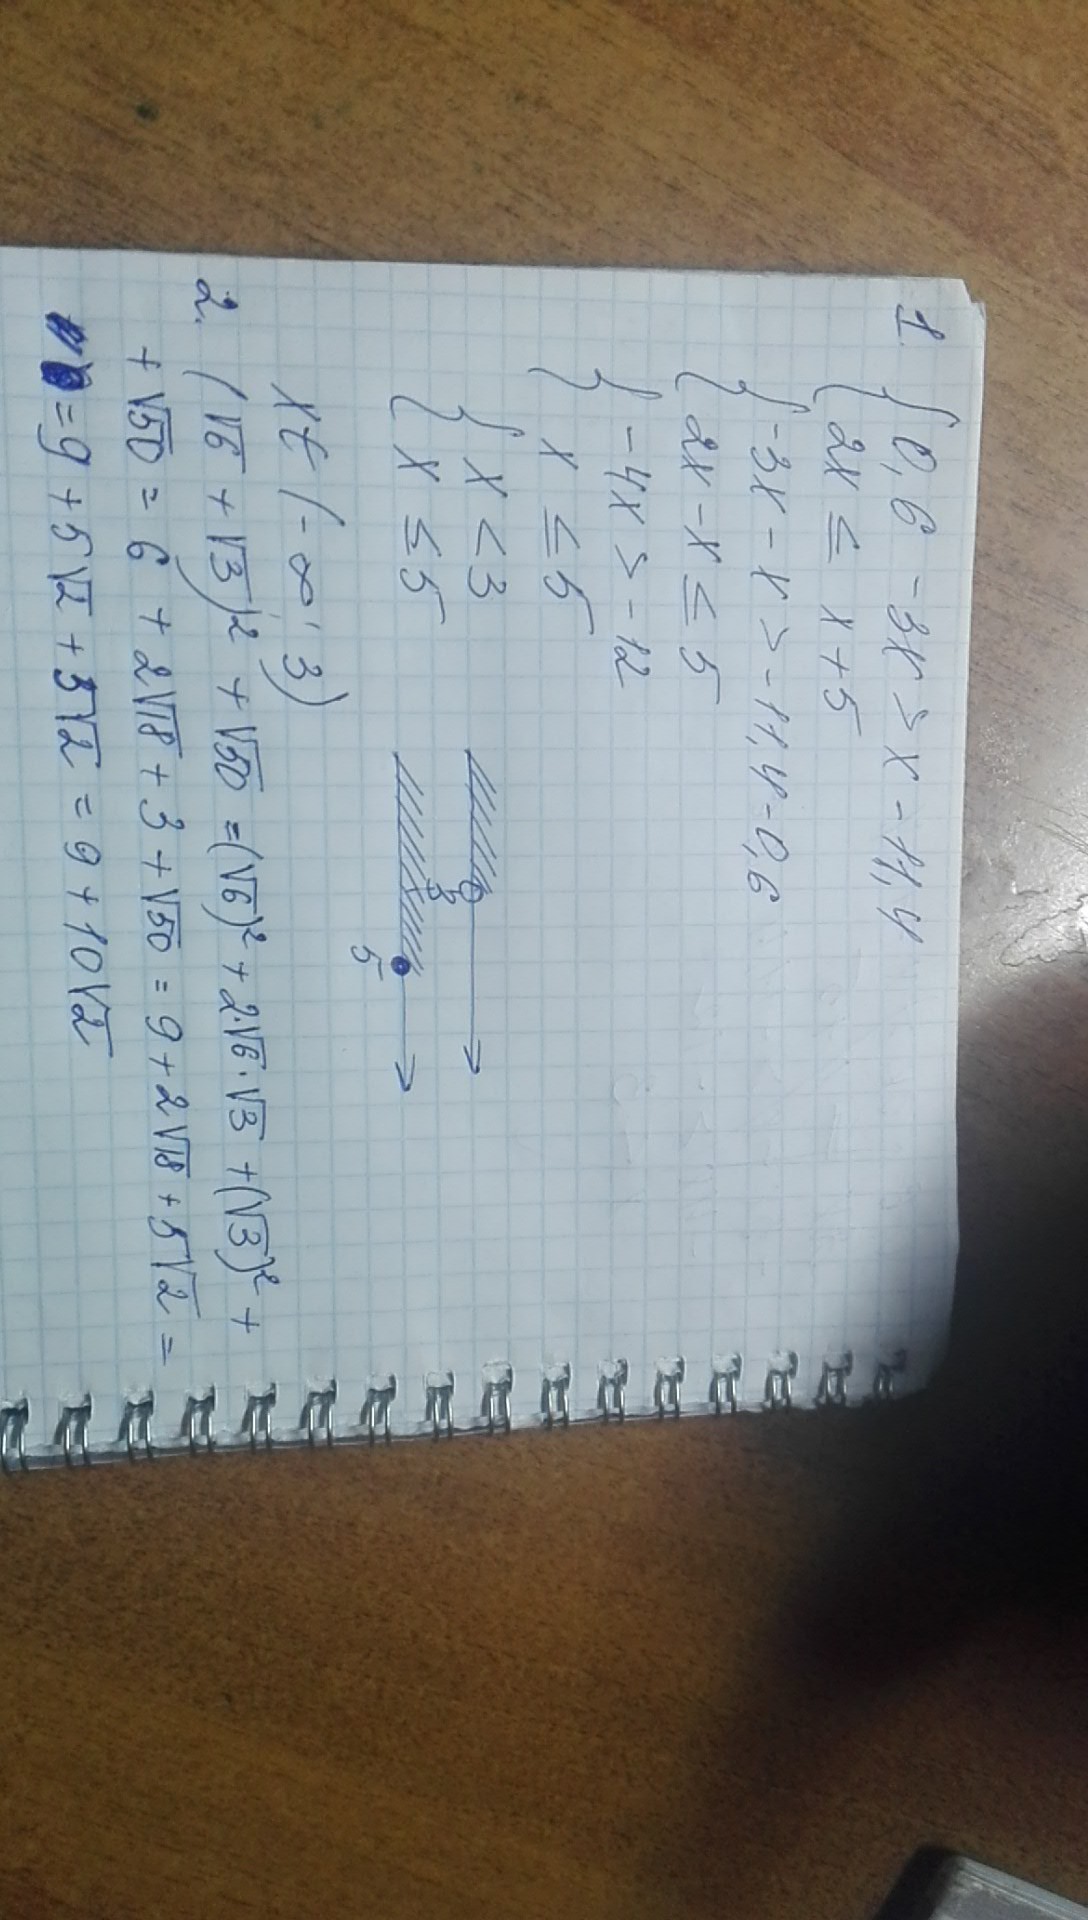 1. { 0,6 - 3x > x - 11,4
{ 2x ≤ x + 5
{ -3x - x > -11,4 - 0,6
{ 2x - x ≤ 5
{ -4x > -12
{ x ≤ 5
{ x < 3
{ x ≤ 5
3
5
x ∈ (-∞; 3)
2. (√6 + √3)² + √50 = (√6)² + 2·√6·√3 + (√3)² +
+ √50 = 6 + 2√18 + 3 + √50 = 9 + 2√18 + 5√2 =
= 9 + 5√2 + 5√2 = 9 + 10√2